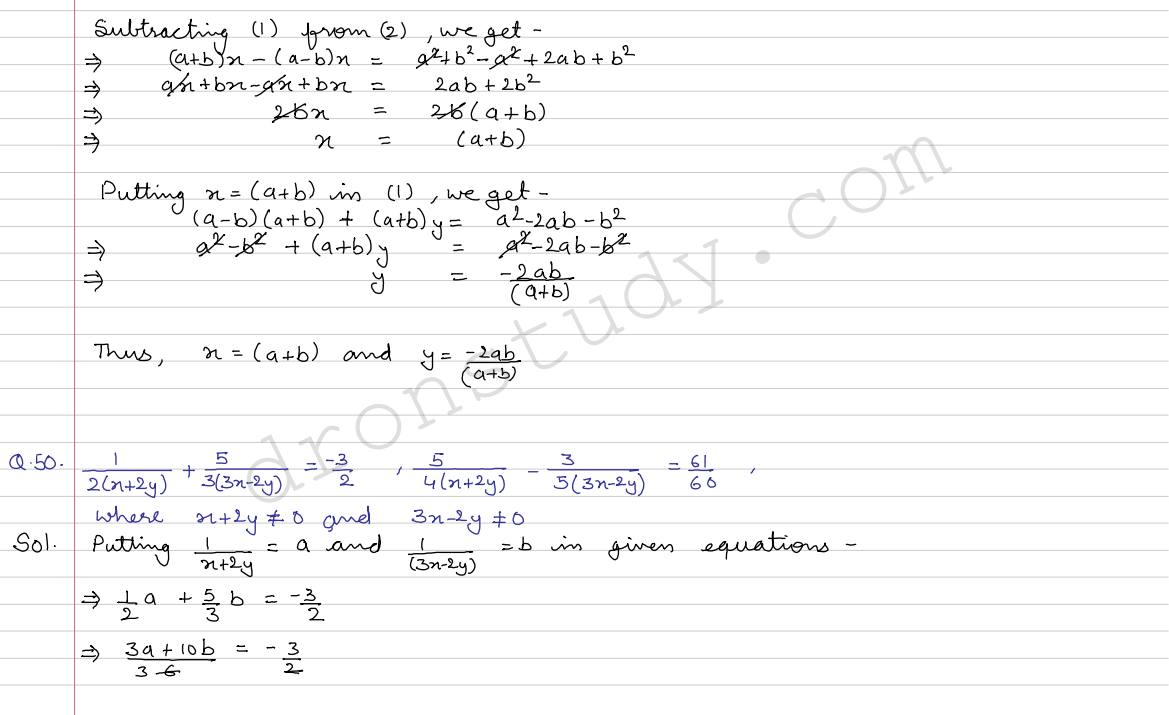 Subtracting (1) from (2), we get -
⇒ (a+b)x - (a-b)x = a²+b² - a² + 2ab + b²
⇒ ax + bx - ax + bx = 2ab + 2b²
⇒ 2bx = 2b(a+b)
⇒ x = (a+b)
Putting x = (a+b) in (1), we get -
(a-b)(a+b) + (a+b)y = a² - 2ab - b²
⇒ a² - b² + (a+b)y = a² - 2ab - b²
⇒ y = -2ab/(a+b)
Thus, x = (a+b) and y = -2ab/(a+b)
Q.50. 1/2(x+2y) + 5/3(3x-2y) = -3/2 , 5/4(x+2y) - 3/5(3x-2y) = 61/60 ,
where x+2y ≠ 0 and 3x-2y ≠ 0
Sol. Putting 1/x+2y = a and 1/(3x-2y) = b in given equations -
⇒ 1/2 a + 5/3 b = -3/2
⇒ 3a + 10b/3 6 = - 3/2
dronstudy.com